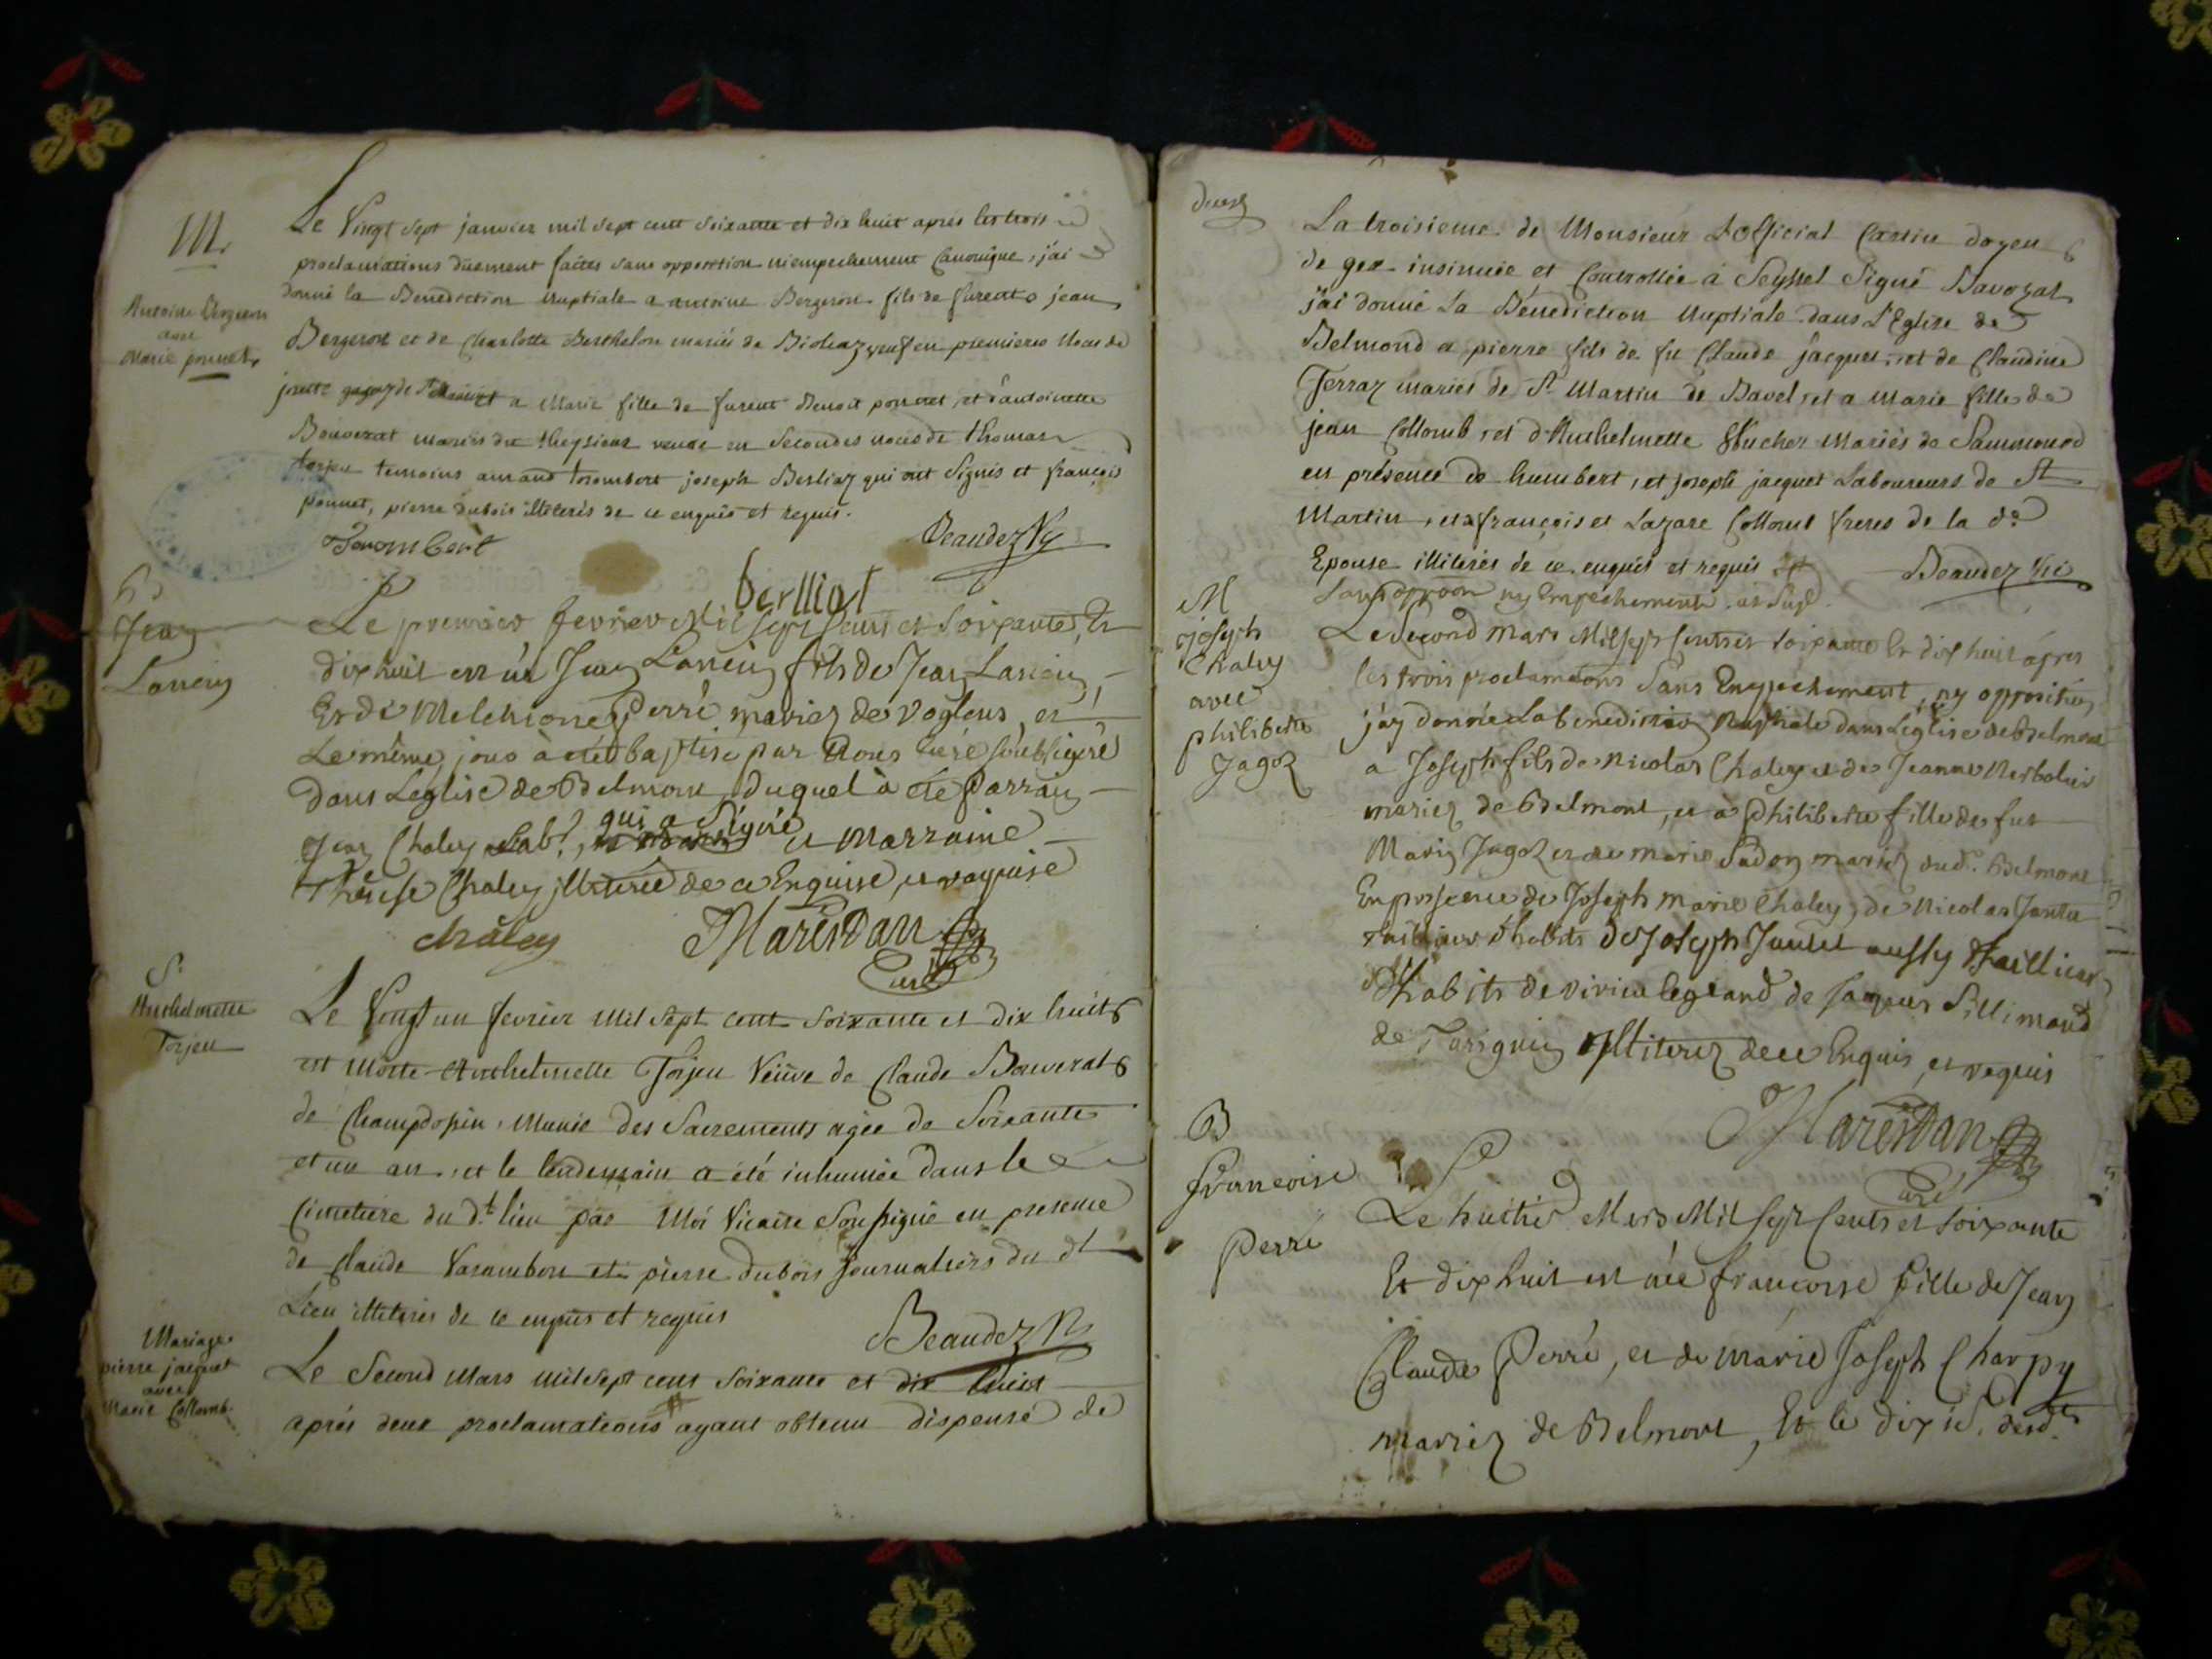 M.
Antoine Bergeron
avec
Marie ponnet
Le Vingt sept janvier mil sept cent soixante et dix huit après les trois
proclamations düement faites sans opposition ni empechement Canonique, j'ai
donné la Benediction nuptiale a antoine Bergeron fils de furent jean
Bergeron et de Charlotte Berthelon mariés de Bioleaz veuf en premieres Noces de
josette de et a Marie fille de furent Benoit ponnet, et d'antoinette
Bouverat mariés de Meysieux veuve en Secondes noces de thomas
torjeu temoins amand trombert joseph Berliaz qui ont Signés et françois
ponnet, pierre dubois illiterés de ce enquis et requis.
Trombert
Beaudez Vic
berlliat
B
Jean
Lancin
Le premier fevrier Mil sept Cents et Soixante Et
dix huit est né Jean Lancin fils de Jean Lancin,
Et de Melchionne Perré mariez de Voglens, et
Le même jour à été baptisé par Nous Curé soubsigné
dans Leglise de Belmont, duquel à été Parrain
Jean Chaley Lab.r, qui a Signé et Marraine
Therese Chaley jlliterée de ce Enquise, et requise
châley
Marestan
Curé
S.
Anthelmette
Torjeu
Le Vingt un fevrier mil sept cent soixante et dix huit
est Morte Anthelmette Torjeu Veüve de Claude Bouverat
de Champdossin, Munie des Sacrements agée de Soixante
et un an, et le lendemain a été inhumée dans le
Cimetiere du d.t lieu par Moi Vicaire Soussigné en presence
de Claude Varambon et pierre dubois journaliers du dt
Lieu illiterés de ce enquis et requis
Beaudez V
Mariage
pierre jacquet
avec
Marie Collomb.
Le Second Mars mil sept cent soixante et dix huit
après deux proclamations ayant obtenu dispense de
La troisieme de Monsieur L'Official Cartin doyen
de gex insinuée et Controllée à Seyssel Signé Bavozat
j'ai donné La Bénediction Nuptiale dans L'Eglise de
Belmond a pierre fils de fu Claude jacquet, et de Claudine
Terraz mariés de St Martin de Bavel, et a Marie fille de
jean Collomb, et d'Anthelmette Mariés de Sammonod
en présence de humbert, et joseph jacquet Laboureurs de St
Martin, et françois et Lazare Collomb freres de la de
Epouse illiterés de ce enquis et requis
Beaudez Vic
Sans oppoon ny Empechement
M
joseph
Chaley
avec
philiberte
Jagoz
Le Second mars Mil sept Cents et soixante Et dix huit après
les trois proclamations Sans Empechement, ny opposition
j'ay donnée La benediction Nuptiale dans L'eglise de Belmont
a Joseph fils de Nicolas Chaley et de Jeanne
mariez de Belmont, et à Philiberte fille de fut
Marin Jagoz et de marie mariez dud. Belmont
En presence de Joseph marie Chaley, de Nicolas
tailleur d'habits de Joseph aussy Tailleur
d'habits de virieu legrand de Jacques Sillimand
de jlliterez de ce Enquis, et requis
Marestan
Curé
B
francoise
Perré
Le huitie Mars Mil sept Cents et Soixante
Et dix huit est née francoise fille de Jean
Claude Perré, et de marie Joseph Charpy
mariez de Belmont, Et le dix